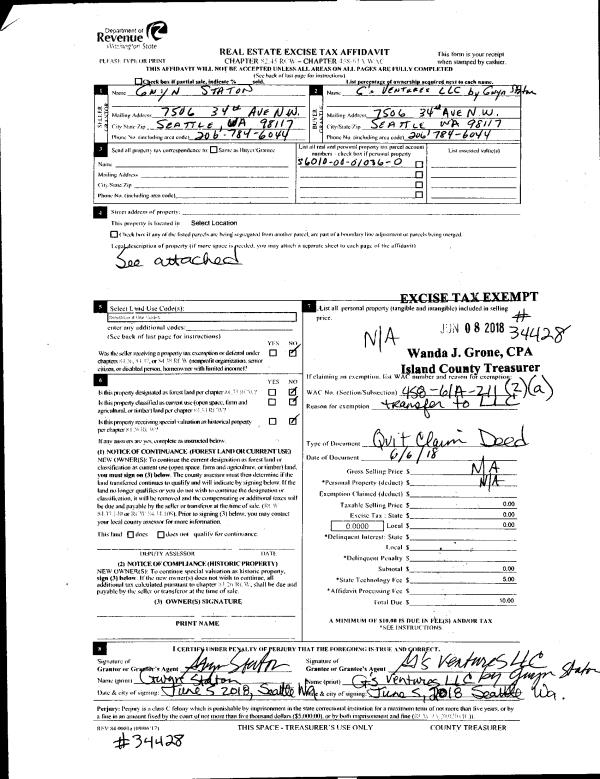 Department of
Revenue
Washington State
REAL ESTATE EXCISE TAX AFFIDAVIT
This form is your receipt
PLEASE TYPE OR PRINT
CHAPTER 82.45 RCW – CHAPTER 458-61A WAC
when stamped by cashier.
THIS AFFIDAVIT WILL NOT BE ACCEPTED UNLESS ALL AREAS ON ALL PAGES ARE FULLY COMPLETED
(See back of last page for instructions)
Check box if partial sale, indicate % sold.
List percentage of ownership acquired next to each name.
1 Name GWYN STATON
2 Name G's VENTURES LLC by Gwyn Staton
SELLER GRANTOR
BUYER GRANTEE
Mailing Address 7506 34th AVE N.W.
Mailing Address 7506 34th AVE N.W.
City/State/Zip SEATTLE WA 98117
City/State/Zip SEATTLE WA 98117
Phone No. (including area code) 206-784-6044
Phone No. (including area code) 206 784-6044
3 Send all property tax correspondence to: Same as Buyer/Grantee
List all real and personal property tax parcel account numbers – check box if personal property
List assessed value(s)
Name
S6010-00-01036-0
Mailing Address
City/State/Zip
Phone No. (including area code)
4 Street address of property:
This property is located in Select Location
Check box if any of the listed parcels are being segregated from another parcel, are part of a boundary line adjustment or parcels being merged.
Legal description of property (if more space is needed, you may attach a separate sheet to each page of the affidavit)
See attached
5 Select Land Use Code(s):
enter any additional codes:
(See back of last page for instructions)
YES NO
Was the seller receiving a property tax exemption or deferral under chapters 84.36, 84.37, or 84.38 RCW (nonprofit organization, senior citizen, or disabled person, homeowner with limited income)?
6 YES NO
Is this property designated as forest land per chapter 84.33 RCW?
Is this property classified as current use (open space, farm and agricultural, or timber) land per chapter 84.34 RCW?
Is this property receiving special valuation as historical property per chapter 84.26 RCW?
If any answers are yes, complete as instructed below.
(1) NOTICE OF CONTINUANCE (FOREST LAND OR CURRENT USE)
NEW OWNER(S): To continue the current designation as forest land or classification as current use (open space, farm and agriculture, or timber) land, you must sign on (3) below. The county assessor must then determine if the land transferred continues to qualify and will indicate by signing below. If the land no longer qualifies or you do not wish to continue the designation or classification, it will be removed and the compensating or additional taxes will be due and payable by the seller or transferor at the time of sale. (RCW 84.33.140 or RCW 84.34.108). Prior to signing (3) below, you may contact your local county assessor for more information.
This land does does not qualify for continuance.
DEPUTY ASSESSOR DATE
(2) NOTICE OF COMPLIANCE (HISTORIC PROPERTY)
NEW OWNER(S): To continue special valuation as historic property, sign (3) below. If the new owner(s) does not wish to continue, all additional tax calculated pursuant to chapter 84.26 RCW, shall be due and payable by the seller or transferor at the time of sale.
(3) OWNER(S) SIGNATURE
PRINT NAME
EXCISE TAX EXEMPT
7 List all personal property (tangible and intangible) included in selling price.
N/A
JUN 08 2018
# 34428
Wanda J. Grone, CPA
Island County Treasurer
If claiming an exemption, list WAC number and reason for exemption:
WAC No. (Section/Subsection) 458-61A-211(2)(a)
Reason for exemption
transfer to LLC
Type of Document Quit Claim Deed
Date of Document 6/6/18
Gross Selling Price $ N/A
*Personal Property (deduct) $ N/A
Exemption Claimed (deduct) $
Taxable Selling Price $ 0.00
Excise Tax : State $ 0.00
0.0000 Local $ 0.00
*Delinquent Interest: State $
Local $
*Delinquent Penalty $
Subtotal $ 0.00
*State Technology Fee $ 5.00
*Affidavit Processing Fee $
Total Due $ 10.00
A MINIMUM OF $10.00 IS DUE IN FEE(S) AND/OR TAX
*SEE INSTRUCTIONS
8 I CERTIFY UNDER PENALTY OF PERJURY THAT THE FOREGOING IS TRUE AND CORRECT.
Signature of Grantor or Grantor's Agent Gwyn Staton
Signature of Grantee or Grantee's Agent G's Ventures LLC
Name (print) Gwyn Staton
Name (print) G's Ventures LLC by Gwyn Staton
Date & city of signing: June 5 2018, Seattle Wa.
Date & city of signing: June 5, 2018 Seattle Wa.
Perjury: Perjury is a class C felony which is punishable by imprisonment in the state correctional institution for a maximum term of not more than five years, or by a fine in an amount fixed by the court of not more than five thousand dollars ($5,000.00), or by both imprisonment and fine (RCW 9A.20.020(1C)).
REV 84 0001a (09/06/17)
THIS SPACE - TREASURER'S USE ONLY
COUNTY TREASURER
#34428